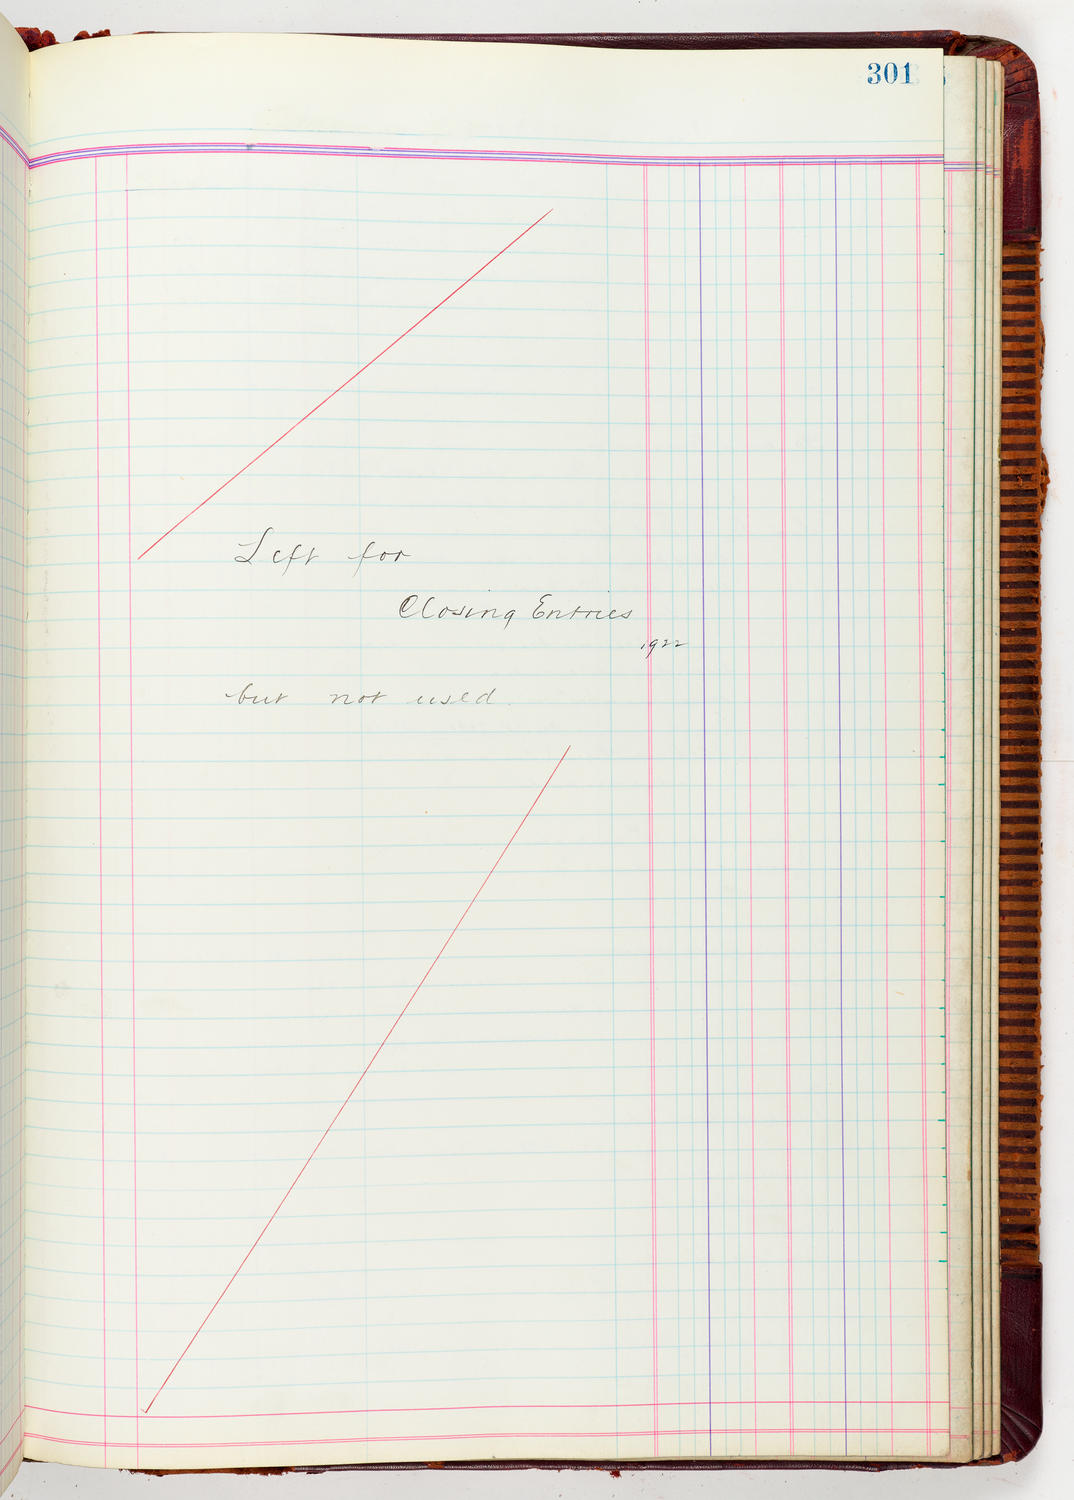 301
Left for
Closing Entries
1922
but not used.